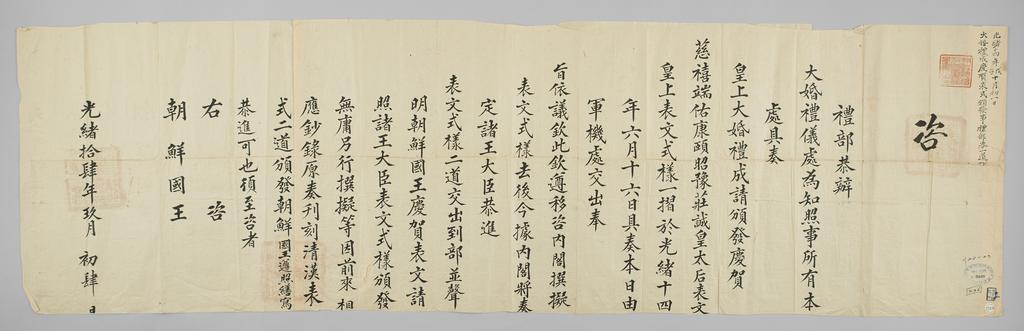 咨
禮部恭辦
大婚禮儀處為知照事所有本
處具奏
皇上大婚禮成請頒發慶賀
慈禧端佑康頤昭豫莊誠皇太后表文
皇上表文式樣一摺於光緒十四
年六月十六日具奏本日由
軍機處交出奉
旨依議欽此欽遵移咨內閣撰擬
表文式樣去後今據內閣將奏
定諸王大臣恭進
表文式樣二道交出到部並聲
明朝鮮國王慶賀表文請
照諸王大臣表文式樣頒發
無庸另行撰擬等因前來相
應鈔錄原奏刊刻清漢表
式二道頒發朝鮮國王遵照繕寫
恭進可也須至咨者
右咨
朝鮮國王
光緒拾肆年玖月初肆日